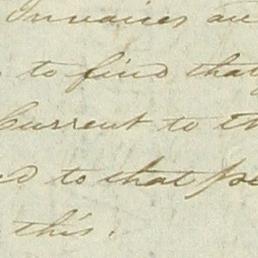 Invoices an
to find that
Current to th
d to that pe
this.